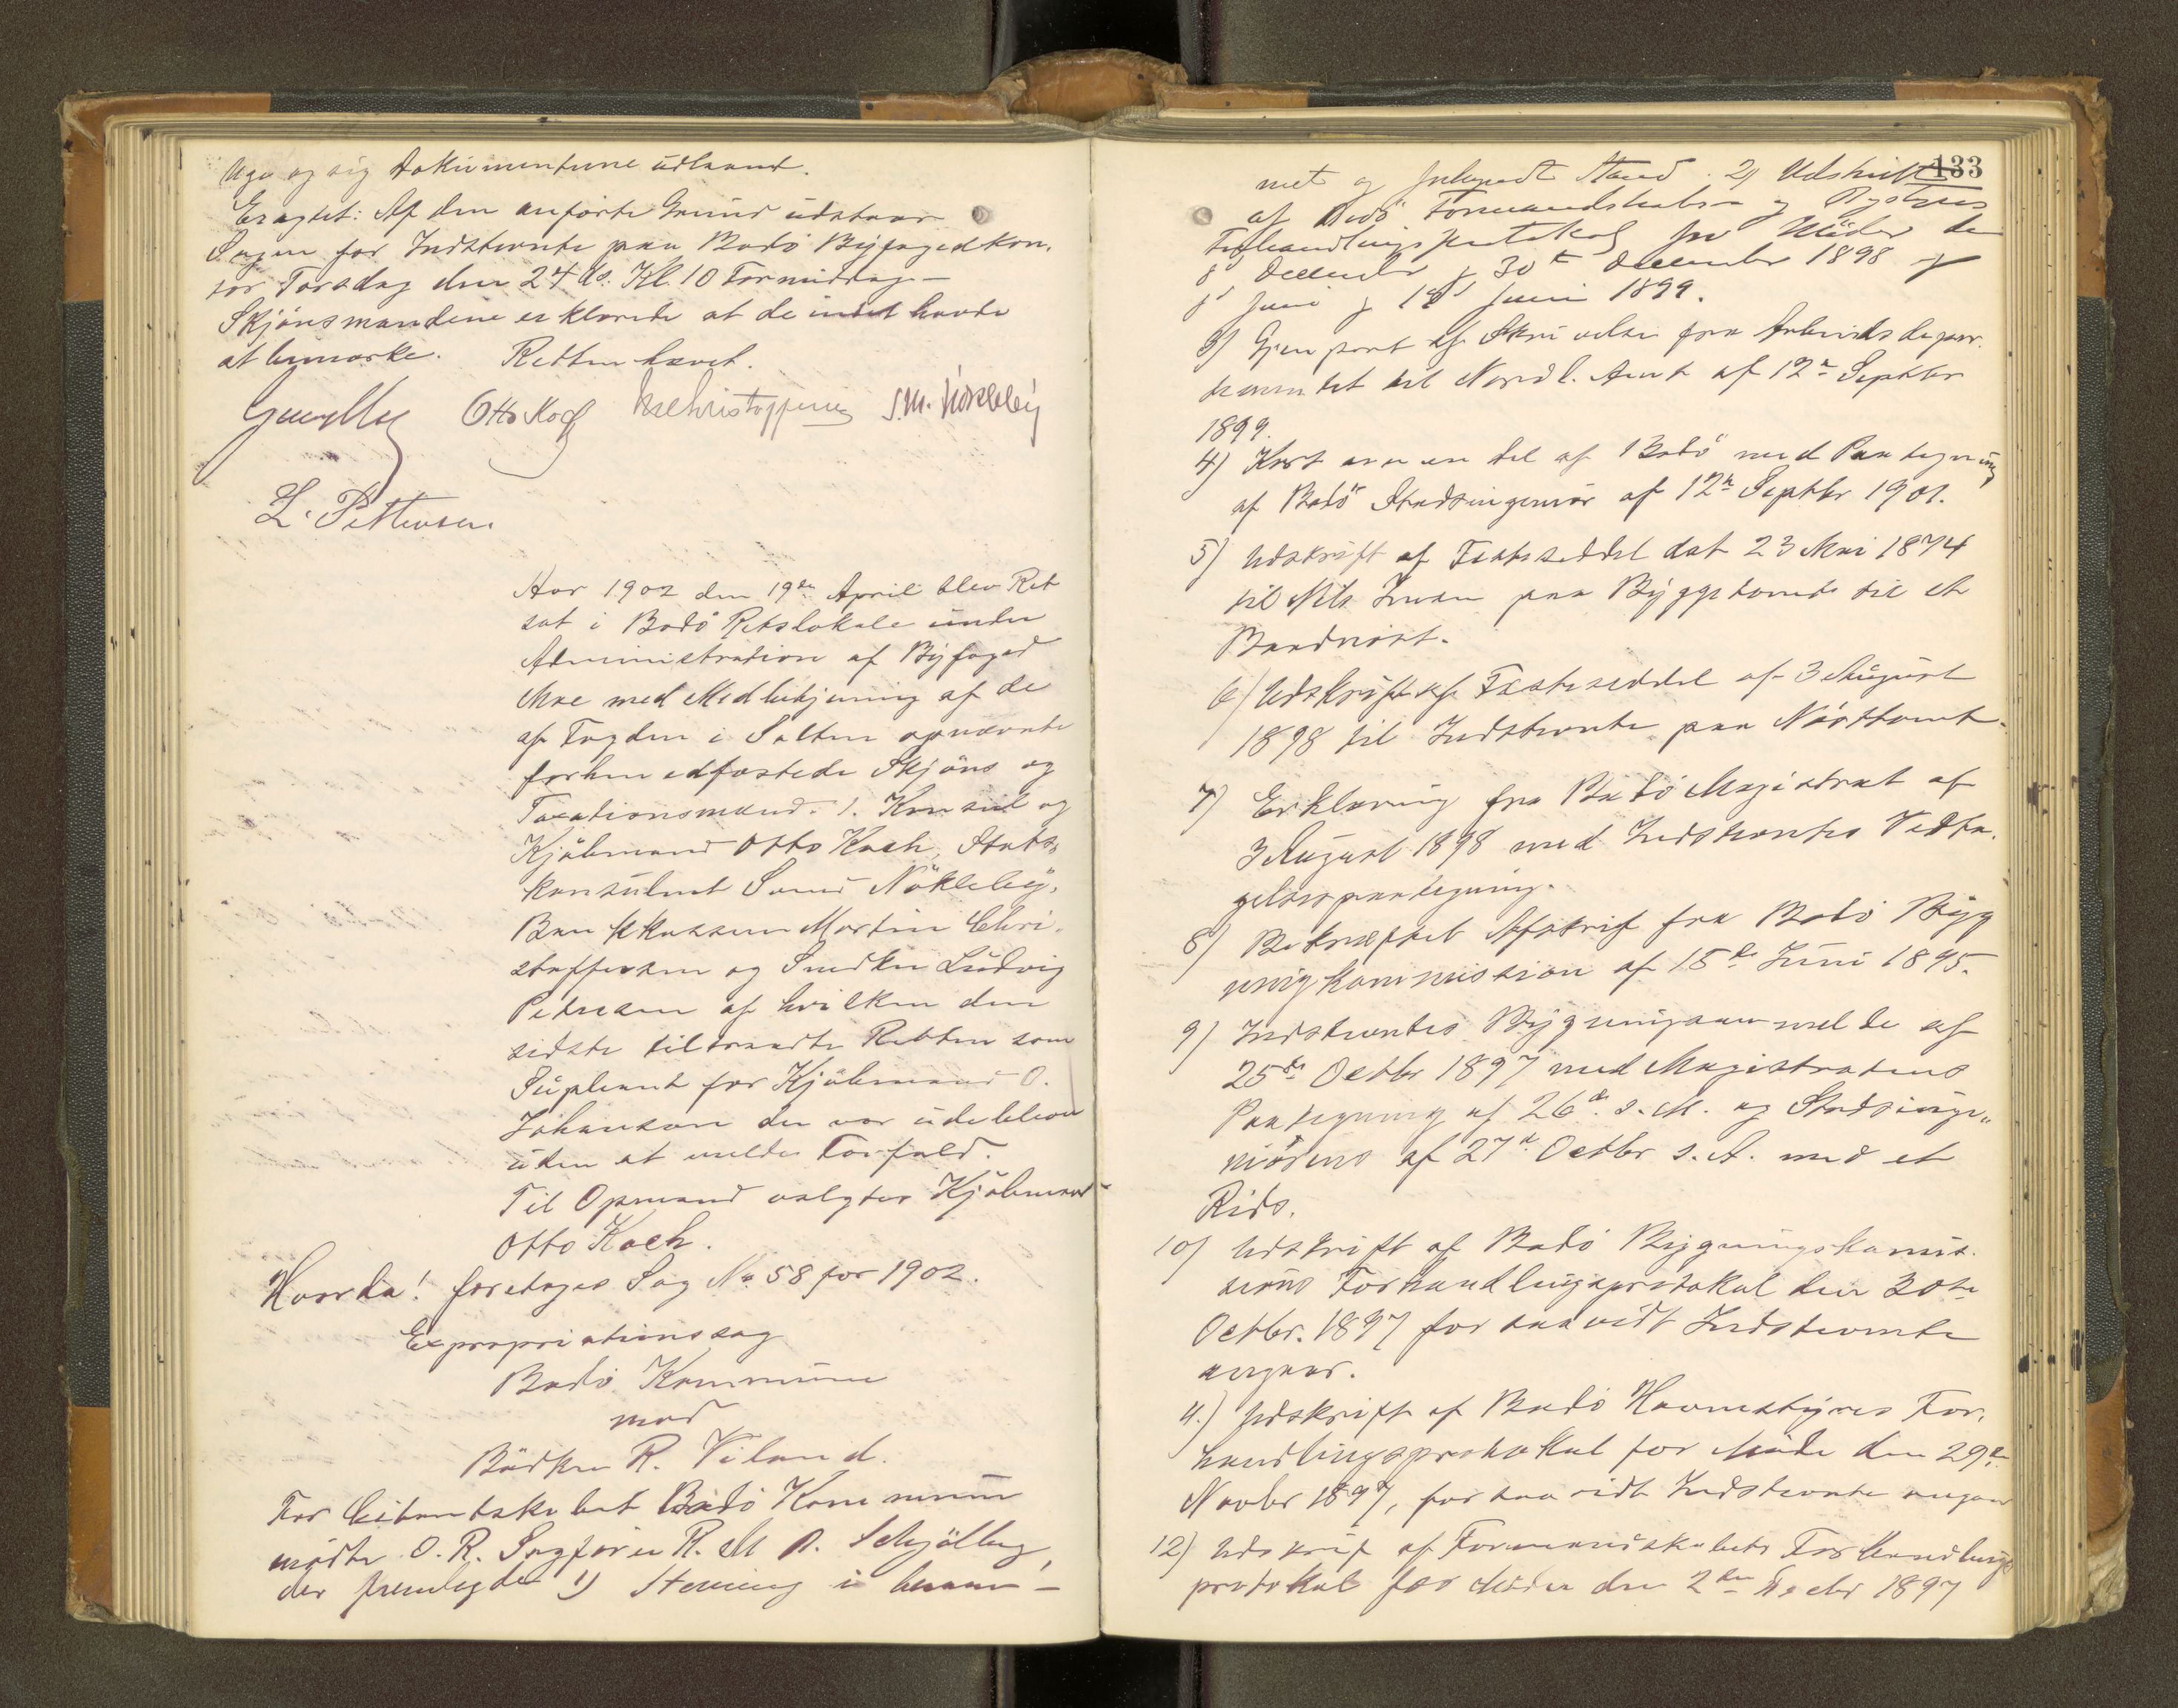 Uge og sig Dokumenterne udlaant.
Eragtet: Af den anförte Grund udstaar
Sagen for Indstevnte paa Bodö Byfogedkon,
tor Torsdag den 24 ds. Kl. 10 Formiddag –
Skjönsmændene erklærede at de intet havde
at bemærke. Retten hævet.
Otto Koch MChristoffersen S.M. Nökleby
L. Pettersen
Aar 1902 den 19de April blev Ret
sat i Bodö Retslokale under
Administration af Byfoged
Moe med Medbetjening af de
af Fogden i Salten opnævnte
forhen edfæstede Skjöns og
Taxationsmænd. 1. Konsul og
Kjöbmand Otto Koch, Stats,
konsulent Sund Nökleby,
Bankkasserer Martin Chri,
stoffersen og Snedker Ludvig
Petersen af hvilken den
sidste tiltraadte Retten som
Supleant for Kjöbmand O.
Johanson der var udebleven
uden at melde Forfald.
Til Opmand valgtes Kjöbmand
Otto Koch.
Hvorda! foretoges Sag No 58 for 1902.
Expropriationssag
Bodö Kommune
mod
Bödker R. Viland.
For Citantskabet Bodö Kommune
mödte O. R. Sagförer R. M. A. Schjölberg,
der fremlagde 1) Stevning i beram –
133
met og forkyndt Stand. 2) Udskrift
af Bodö Formandskabs og Bystyres
Forhandlingsprotokol for Möder den
8de December og 30te December 1898 og
Juni og Juni 1899.
3) Gjenpart af Skrivelse fra Arbeidsdepar.
tementet til Nordl. Amt af 12te Septbr
1899.
4) Kart over en del af Bodö med Paategning
af Bodö Stadsingeniör af 12te Septbr 1901.
5) Udskrift af Festeseddel dat 23 Mai 1874
til Nils Iversen paa Byggetomt til et
Baadnöst.
6) Udskrift af Festeseddel af 3 August
1898 til Indstevnte paa Nösttomt.
7) Erklæring fra Bodö Magistrat af
3 August 1898 med Indstevntes Vedta,
gelsespaategning.
8) Bekræftet Afskrift fra Bodö Byg
ningkommission af 15de Juni 1895.
9) Indstevntes Bygningsanmelde af
25de Octbr 1897 med Magistratens
Paategning af 26de s. M. og Stadsinge„
niörens af 27de Octbr s. A. med et
Rids.
10) Udskrift af Bodö Bygningskomis.
sions Forhandlingsprotokol den 30te
Octbr. 1897 for saavidt Indstevnte
angaar.
11.) Udskrift af Bodö Havnestyres For,
handlingsprotokol for Möde den 29de
Novbr 1897, for saavidt Indstevnte angaar
12) Udskrift af Formandskabets Forhandlings
protokol for Möde den 2den Decbr 1897